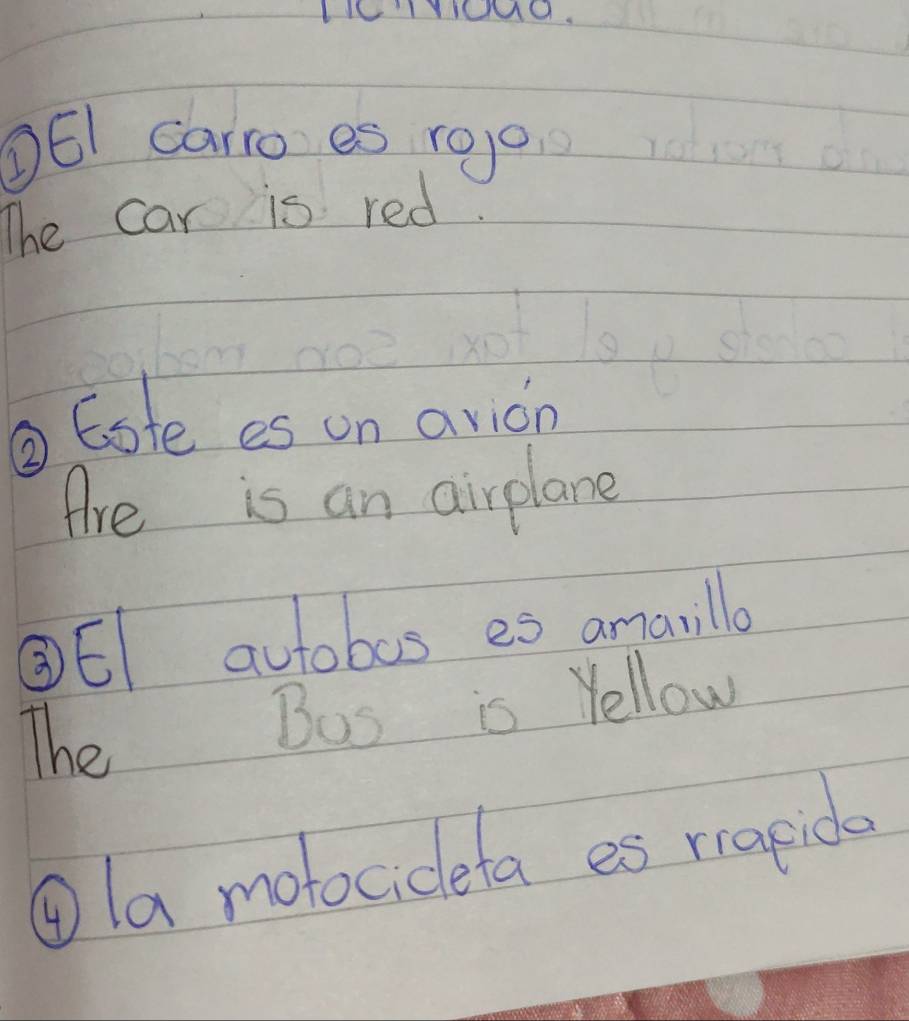 ① El carro es rojo
The car is red.
② Este es un avión
Are is an airplane
③ El autobus es amarillo
The Bus is Yellow
④ la motocicleta es rrapida